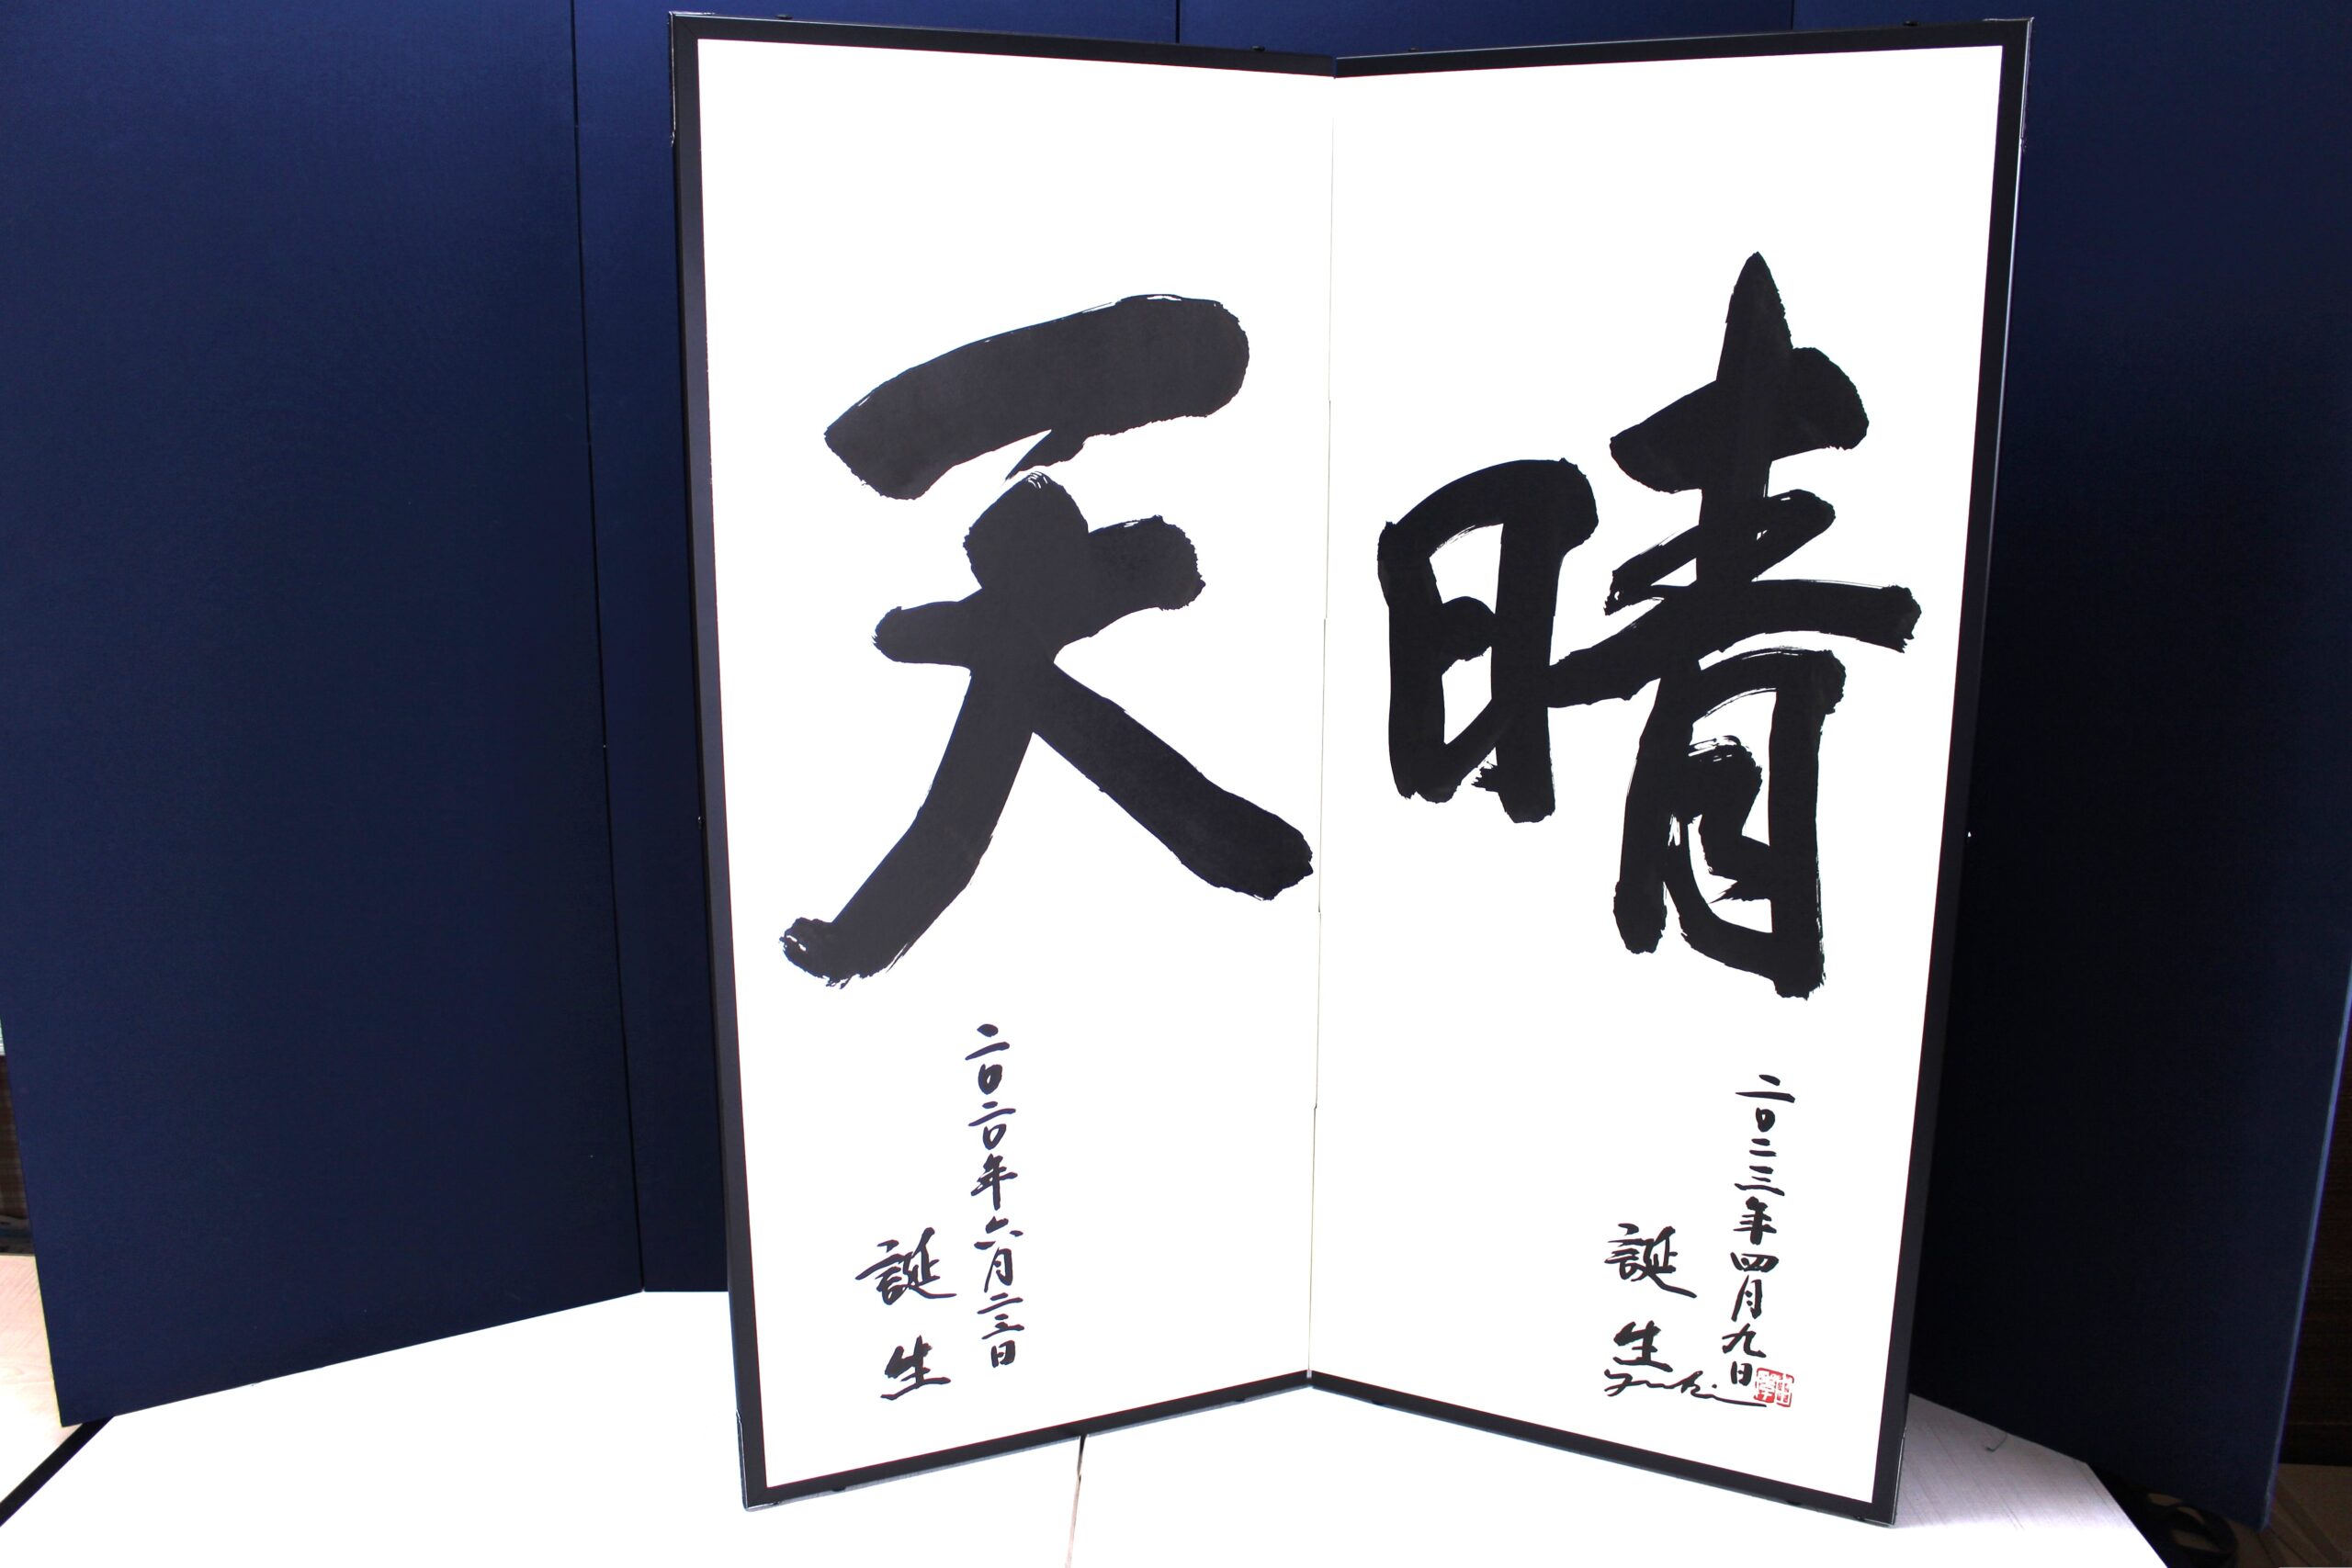 天
二〇二〇年六月二三日
誕生
晴
二〇二三年四月九日
誕生